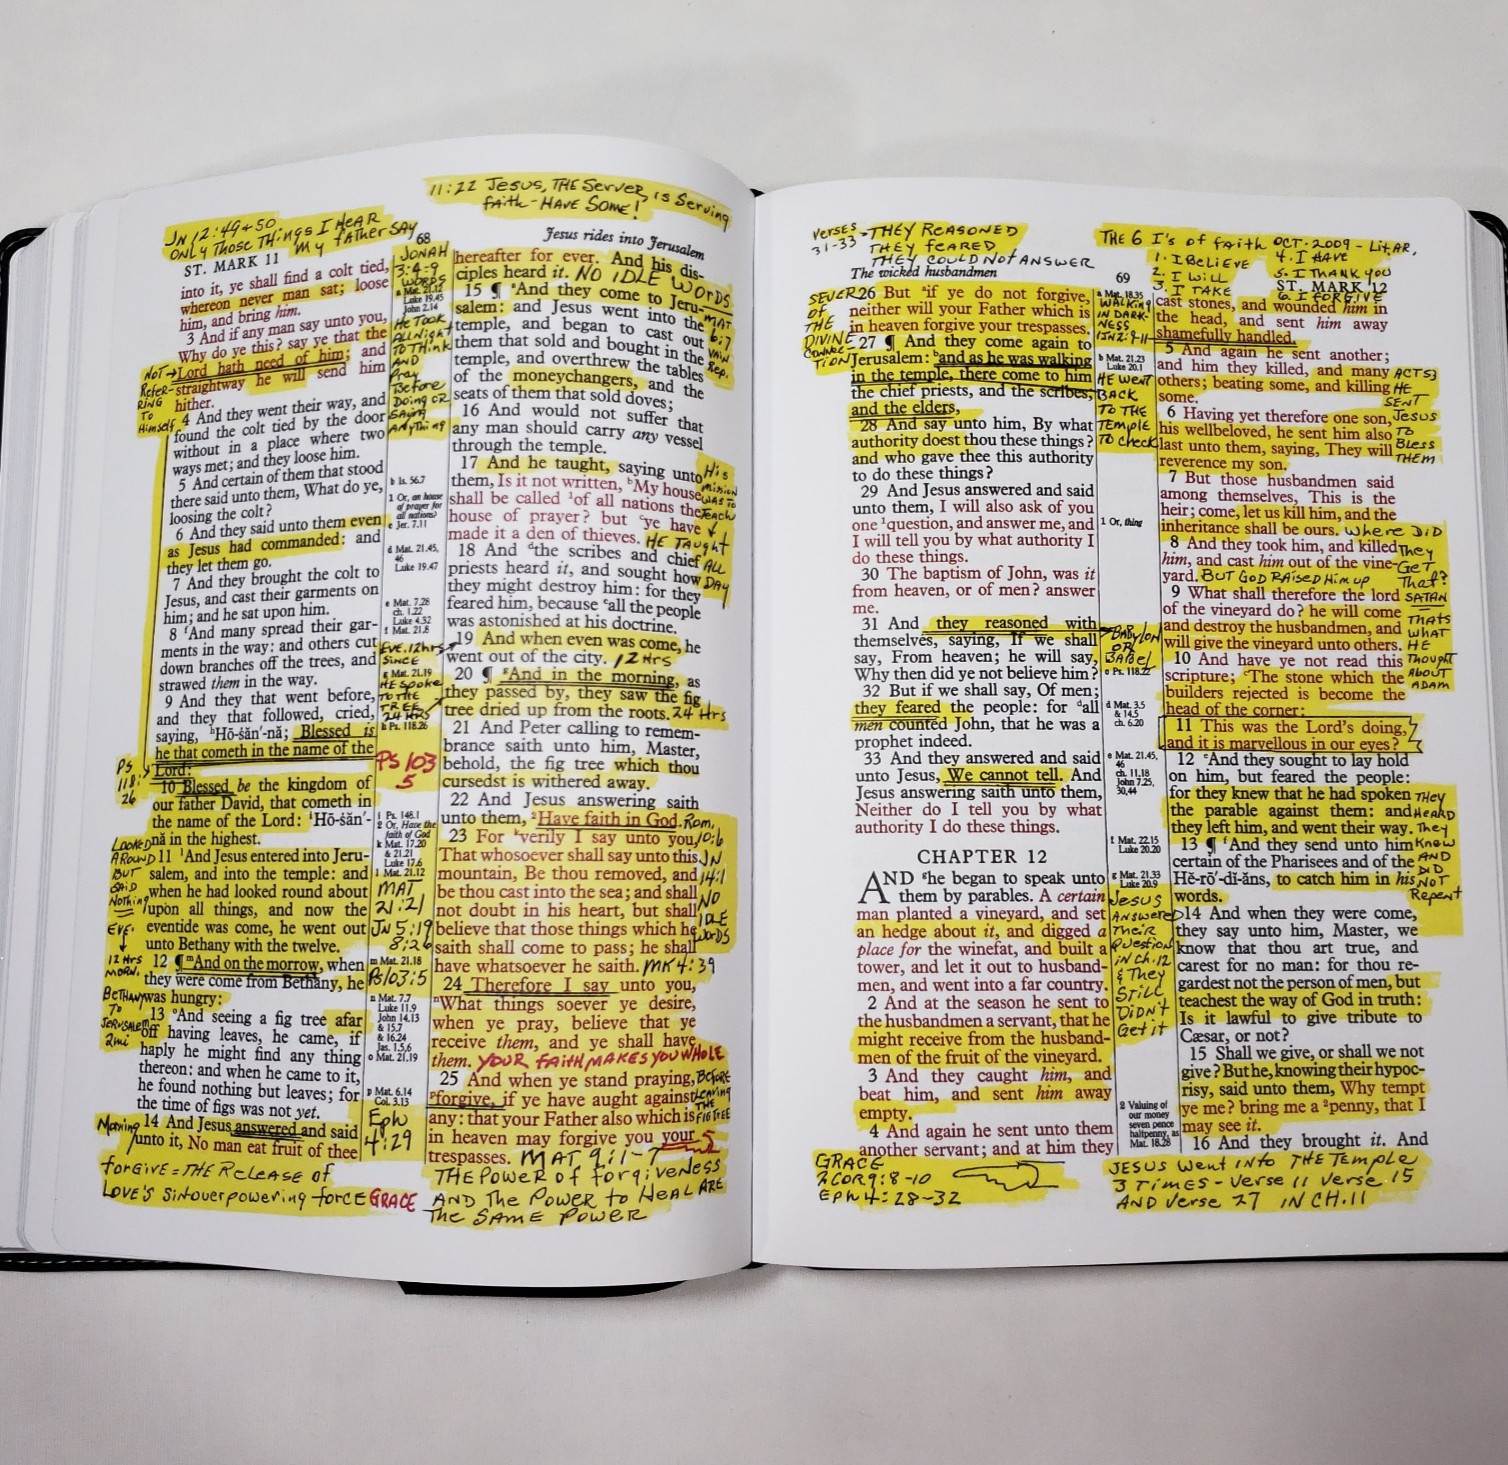 11:22 Jesus, THE Server is Serving
faith - HAVE SOME!
JN 12:49+50
ONLY THOSE THINGS I HEAR
MY FATHER SAY
68
Jesus rides into Jerusalem
ST. MARK 11
into it, ye shall find a colt tied,
whereon never man sat; loose
him, and bring him.
3 And if any man say unto you,
Why do ye this? say ye that the
Lord hath need of him; and
straightway he will send him
hither.
4 And they went their way, and
found the colt tied by the door
without in a place where two
ways met; and they loose him.
5 And certain of them that stood
there said unto them, What do ye,
loosing the colt?
6 And they said unto them even
as Jesus had commanded: and
they let them go.
7 And they brought the colt to
Jesus, and cast their garments on
him; and he sat upon him.
8 fAnd many spread their gar-
ments in the way: and others cut
down branches off the trees, and
strawed them in the way.
9 And they that went before,
and they that followed, cried,
saying, hHō-ṡăn'-nă; Blessed is
he that cometh in the name of the
Lord:
10 Blessed be the kingdom of
our father David, that cometh in
the name of the Lord: iHō-ṡăn'-
nă in the highest.
11 lAnd Jesus entered into Jeru-
salem, and into the temple: and
when he had looked round about
upon all things, and now the
eventide was come, he went out
unto Bethany with the twelve.
12 ¶ mAnd on the morrow, when
they were come from Bethany, he
was hungry:
13 oAnd seeing a fig tree afar
off having leaves, he came, if
haply he might find any thing
thereon: and when he came to it,
he found nothing but leaves; for
the time of figs was not yet.
14 And Jesus answered and said
unto it, No man eat fruit of thee
NOT →
Refer-
RING
TO
Himself
PS
118:
26
LOOKED
AROUND
BUT
SAID
NOTHING
EVE.
↓
12 HRS
MORN.
BETHANY
TO
JERUSALEM
2mi
Morning
forgive = THE Release of
LOVE'S Sinoverpowering force GRACE
JONAH
3:4-9
WORDS
a Mat. 21.12
Luke 19.45
John 2.14
HE TOOK
ALL NIGHT
TO THINK
AND
Pray
Before
Doing OR
Saying
ANYTHING
b Is. 56.7
1 Or, an house
of prayer for
all nations?
c Jer. 7.11
d Mat. 21.45,
46
Luke 19.47
e Mat. 7.28
ch. 1.22
Luke 4.32
f Mat. 21.8
EVE. 12hrs
SINCE
g Mat. 21.19
HE Spoke
TO THE
TREE
24 HRS
h Ps. 118.26
PS 103
5
i Ps. 148.1
2 Or, Have the
faith of God
k Mat. 17.20
& 21.21
Luke 17.6
l Mat. 21.12
MAT
21:21
JN 5:19
8:26
m Mat. 21.18
Ps 103:5
n Mat. 7.7
Luke 11.9
John 14.13
& 15.7
& 16.24
Jas. 1.5,6
o Mat. 21.19
p Mat. 6.14
Col. 3.13
Eph
4:29
hereafter for ever. And his dis-
ciples heard it. NO IDLE WORDS
15 ¶ aAnd they come to Jeru-
salem: and Jesus went into the
temple, and began to cast out
them that sold and bought in the
temple, and overthrew the tables
of the moneychangers, and the
seats of them that sold doves;
16 And would not suffer that
any man should carry any vessel
through the temple.
17 And he taught, saying unto
them, Is it not written, bMy house
shall be called 1of all nations the
house of prayer? but cye have
made it a den of thieves. HE TAUGHT
18 And dthe scribes and chief
priests heard it, and sought how
they might destroy him: for they
feared him, because eall the people
was astonished at his doctrine.
19 And when even was come, he
went out of the city. 12 HRS
20 ¶ gAnd in the morning, as
they passed by, they saw the fig
tree dried up from the roots. 24 Hrs
21 And Peter calling to remem-
brance saith unto him, Master,
behold, the fig tree which thou
cursedst is withered away.
22 And Jesus answering saith
unto them, 2Have faith in God. Rom,
23 For kverily I say unto you,
That whosoever shall say unto this
mountain, Be thou removed, and
be thou cast into the sea; and shall
not doubt in his heart, but shall
believe that those things which he
saith shall come to pass; he shall
have whatsoever he saith. MK 4:39
24 Therefore I say unto you,
nWhat things soever ye desire,
when ye pray, believe that ye
receive them, and ye shall have
them. YOUR FAITH MAKES YOU WHOLE
25 And when ye stand praying,
pforgive, if ye have aught against
any: that your Father also which is
in heaven may forgive you your
trespasses. MAT 9:1-7
THE POWER of forgiveness
AND THE POWER to HEAL ARE
THE SAME POWER
MAT
6:7
VAIN
Rep.
His
mission
WAS TO
TEACH
↓
ALL
DAY
10:6
JN
14:1
NO
IDLE
WORDS
BEFORE
Leaving
THE
FIG TREE
verses → THEY REASONED
31-33 THEY feared
THEY COULD NOT ANSWER
The wicked husbandmen
69
THE 6 I's of faith OCT. 2009 - Lit. AR.
1. I BELIEVE
2. I WILL
3. I TAKE
4. I HAVE
5. I THANK YOU
6. I FORGIVE
ST. MARK 12
SEVER
OF
THE
DIVINE
CONNEC-
TION
26 But aif ye do not forgive,
neither will your Father which is
in heaven forgive your trespasses.
27 ¶ And they come again to
Jerusalem: band as he was walking
in the temple, there come to him
the chief priests, and the scribes,
and the elders,
28 And say unto him, By what
authority doest thou these things?
and who gave thee this authority
to do these things?
29 And Jesus answered and said
unto them, I will also ask of you
one 1question, and answer me, and
I will tell you by what authority I
do these things.
30 The baptism of John, was it
from heaven, or of men? answer
me.
31 And they reasoned with
themselves, saying, If we shall
say, From heaven; he will say,
Why then did ye not believe him?
32 But if we shall say, Of men;
they feared the people: for dall
men counted John, that he was a
prophet indeed.
33 And they answered and said
unto Jesus, We cannot tell. And
Jesus answering saith unto them,
Neither do I tell you by what
authority I do these things.
CHAPTER 12
AND ghe began to speak unto
them by parables. A certain
man planted a vineyard, and set
an hedge about it, and digged a
place for the winefat, and built a
tower, and let it out to husband-
men, and went into a far country.
2 And at the season he sent to
the husbandmen a servant, that he
might receive from the husband-
men of the fruit of the vineyard.
3 And they caught him, and
beat him, and sent him away
empty.
4 And again he sent unto them
another servant; and at him they
GRACE
2 COR 9:8-10
EPH 4:28-32
a Mat. 18.35
WALKING
IN DARK-
NESS
1 JN 2:9-11
b Mat. 21.23
Luke 20.1
HE WENT
BACK
TO THE
TEMPLE
TO check
1 Or, thing
BABYLON
OR
BABEL
c Ps. 118.22
d Mat. 3.5
& 14.5
ch. 6.20
e Mat. 21.45,
46
ch. 11.18
John 7.25,
30,44
f Mat. 22.15
Luke 20.20
g Mat. 21.33
Luke 20.9
Jesus
ANSWERED
Their
Question
IN CH. 12
& They
STILL
DIDN'T
Get it
2 Valuing of
our money
seven pence
halfpenny, as
Mat. 18.28
cast stones, and wounded him in
the head, and sent him away
shamefully handled.
5 And again he sent another;
and him they killed, and many
others; beating some, and killing
some.
6 Having yet therefore one son,
his wellbeloved, he sent him also
last unto them, saying, They will
reverence my son.
7 But those husbandmen said
among themselves, This is the
heir; come, let us kill him, and the
inheritance shall be ours. Where DID
8 And they took him, and killed
him, and cast him out of the vine-
yard. BUT GOD RAISED Him up
9 What shall therefore the lord
of the vineyard do? he will come
and destroy the husbandmen, and
will give the vineyard unto others.
10 And have ye not read this
scripture; cThe stone which the
builders rejected is become the
head of the corner:
11 This was the Lord's doing,
and it is marvellous in our eyes?
12 eAnd they sought to lay hold
on him, but feared the people:
for they knew that he had spoken
the parable against them: and
they left him, and went their way.
13 ¶ fAnd they send unto him
certain of the Pharisees and of the
Hĕ-rō'-dĭ-ăns, to catch him in his
words.
14 And when they were come,
they say unto him, Master, we
know that thou art true, and
carest for no man: for thou re-
gardest not the person of men, but
teachest the way of God in truth:
Is it lawful to give tribute to
Cæsar, or not?
15 Shall we give, or shall we not
give? But he, knowing their hypoc-
risy, said unto them, Why tempt
ye me? bring me a 2penny, that I
may see it.
16 And they brought it. And
ACTS 3
HE
SENT
Jesus
TO
Bless
THEM
They
GET
That?
SATAN
THATS
WHAT
HE
Thought
ABOUT
ADAM
THEY
HEARD
They
Knew
AND
DID
NOT
Repent
JESUS Went INTO THE Temple
3 TIMES - Verse 11 Verse 15
AND Verse 27 IN CH. 11